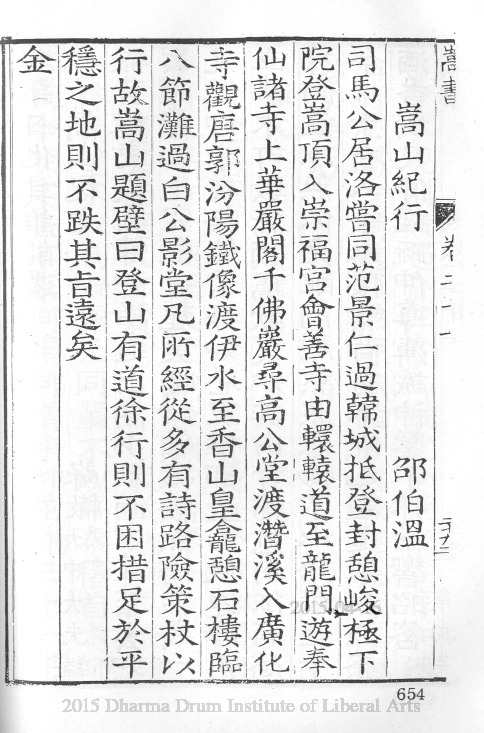 嵩書
卷二十一
二十九
嵩山紀行 邵伯溫
司馬公居洛嘗同范景仁過韓城抵登封憇峻極下
院登嵩頂入崇福宮會善寺由轘轅道至龍門遊奉
仙諸寺上華嚴閣千佛巖尋高公堂渡潛溪入廣化
寺觀唐郭汾陽鐵像渡伊水至香山皇龕憩石樓臨
八節灘過白公影堂凡所經從多有詩路險策杖以
行故嵩山題壁曰登山有道徐行則不困措足於平
穩之地則不跌其旨遠矣
金
654
2015 Dharma Drum Institute of Liberal Arts